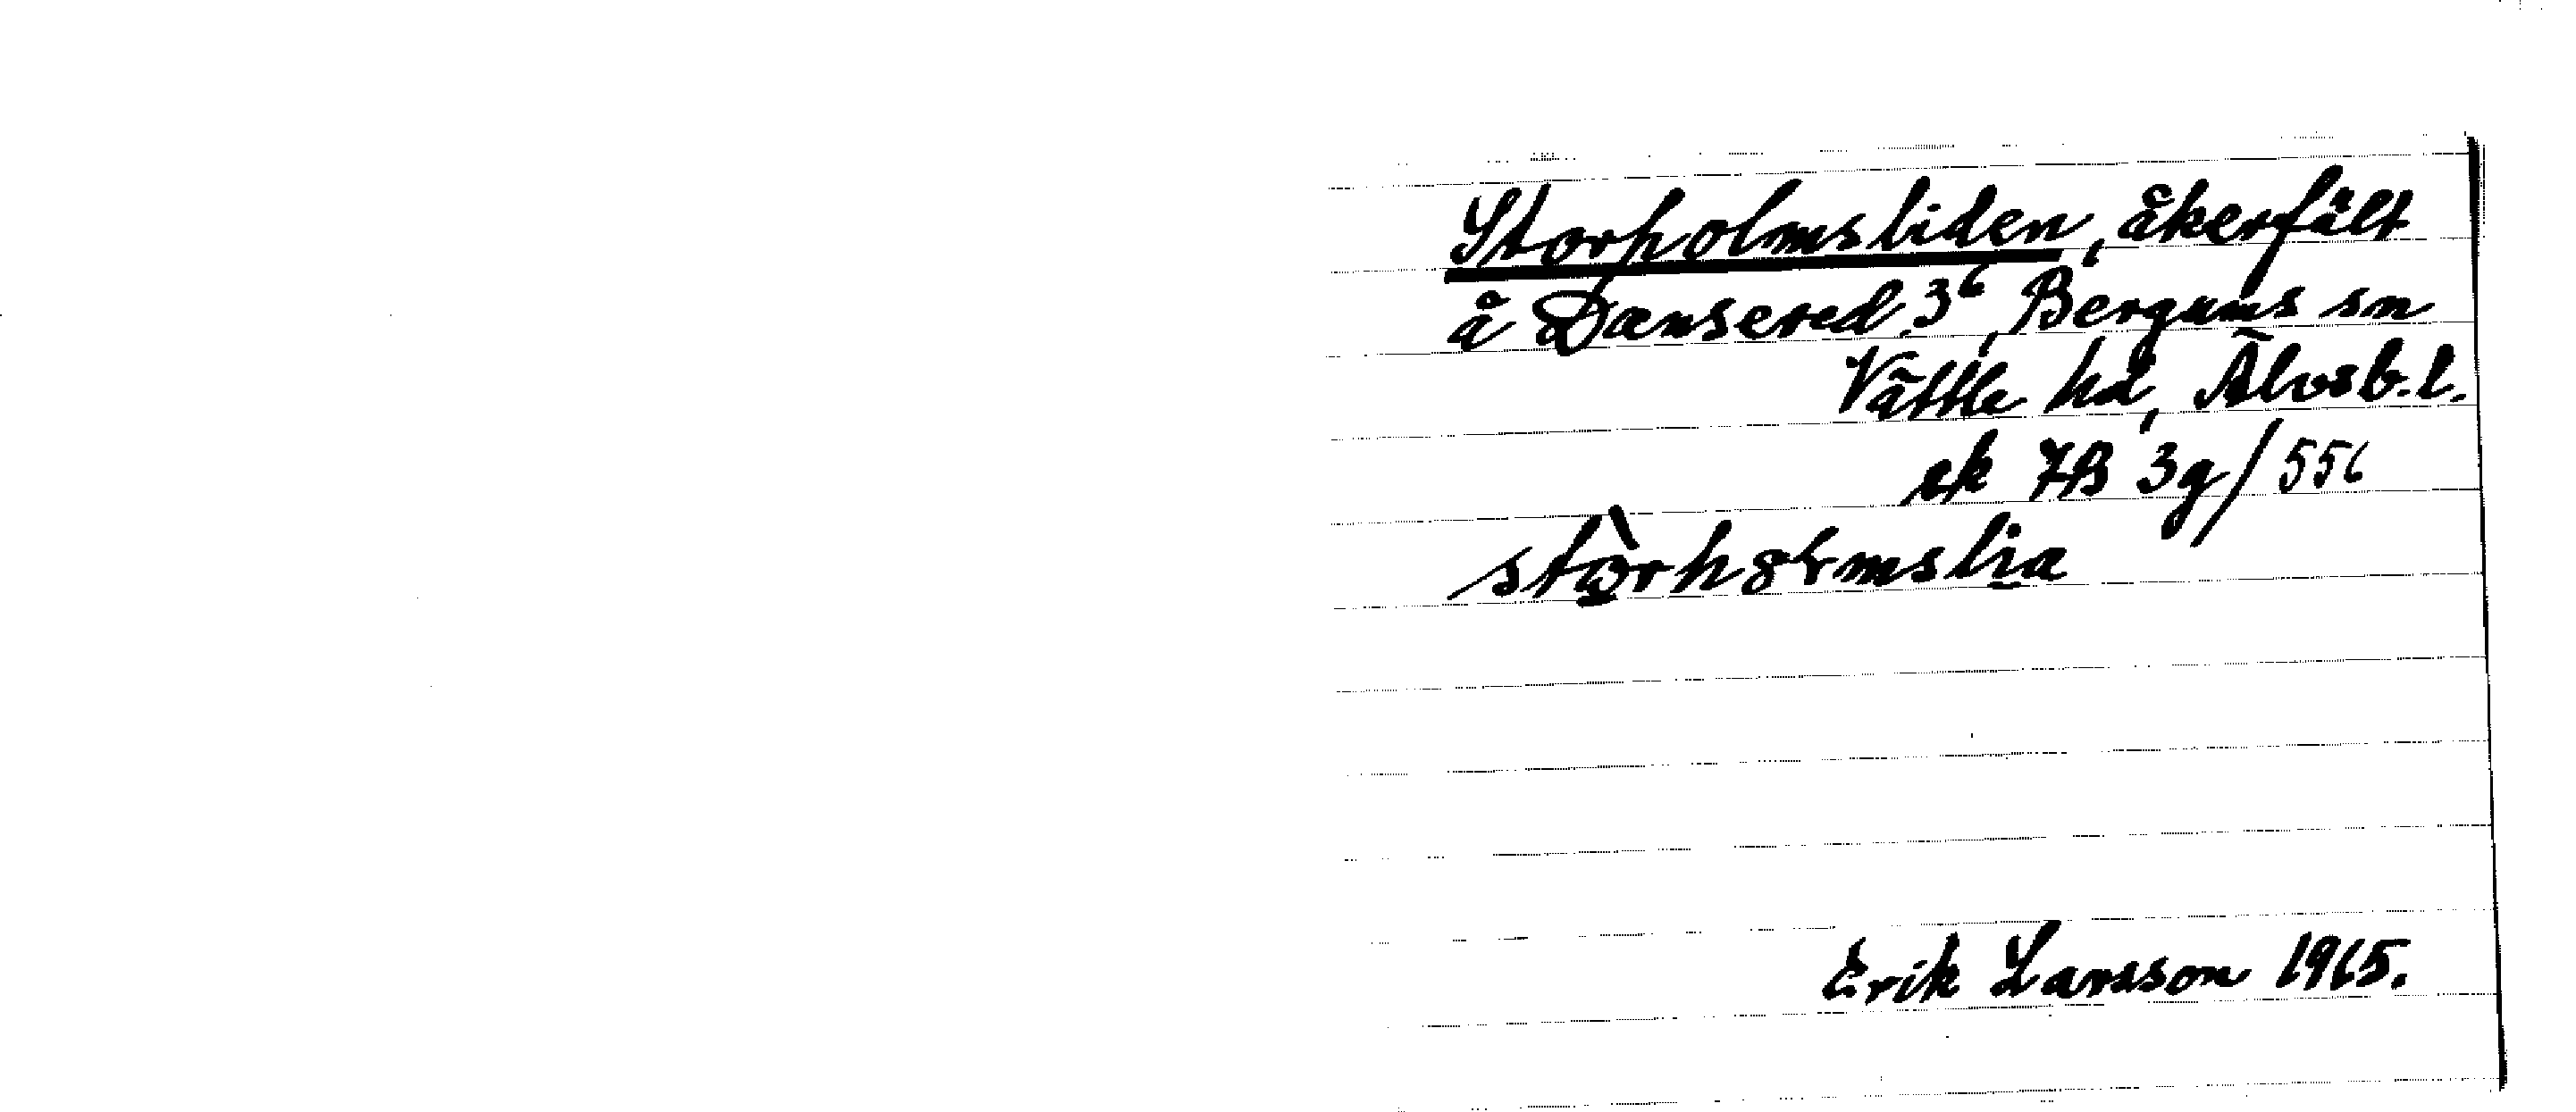 Storholmsliden, åkerfält
å Dansered 3⁶, Bergums sn
Vättle hd, Älvsb. l.
ek 7B 3g/556
stòrhormslia
Erik Larsson 1965.